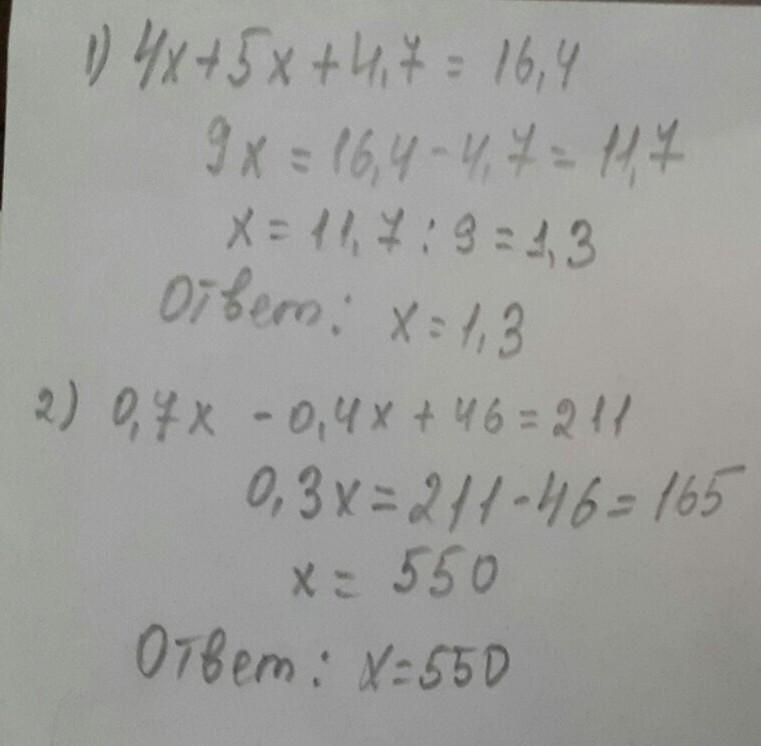 1) 4x+5x+4,7=16,4
9x=16,4-4,7=11,7
x=11,7:9=1,3
Ответ: x=1,3
2) 0,7x -0,4x+46=211
0,3x=211-46=165
x= 550
Ответ: x=550